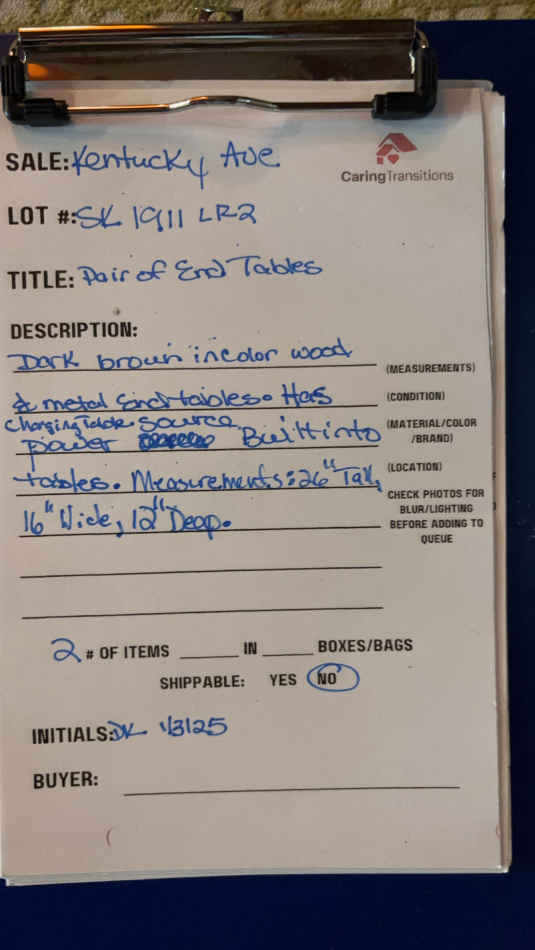 SALE: Kentucky Ave
CaringTransitions
LOT #: SK 1911 LR2
TITLE: Pair of End Tables
DESCRIPTION:
Dark brown in color wood
(MEASUREMENTS)
& metal end tables. Has
(CONDITION)
Charging Table Source
power Built into
(MATERIAL/COLOR
/BRAND)
tables. Measurements: 26" Tall,
(LOCATION)
16" Wide, 12" Deep.
CHECK PHOTOS FOR
BLUR/LIGHTING
BEFORE ADDING TO
QUEUE
2 # OF ITEMS ___ IN ___ BOXES/BAGS
SHIPPABLE: YES NO
INITIALS: DK 1/31/25
BUYER: